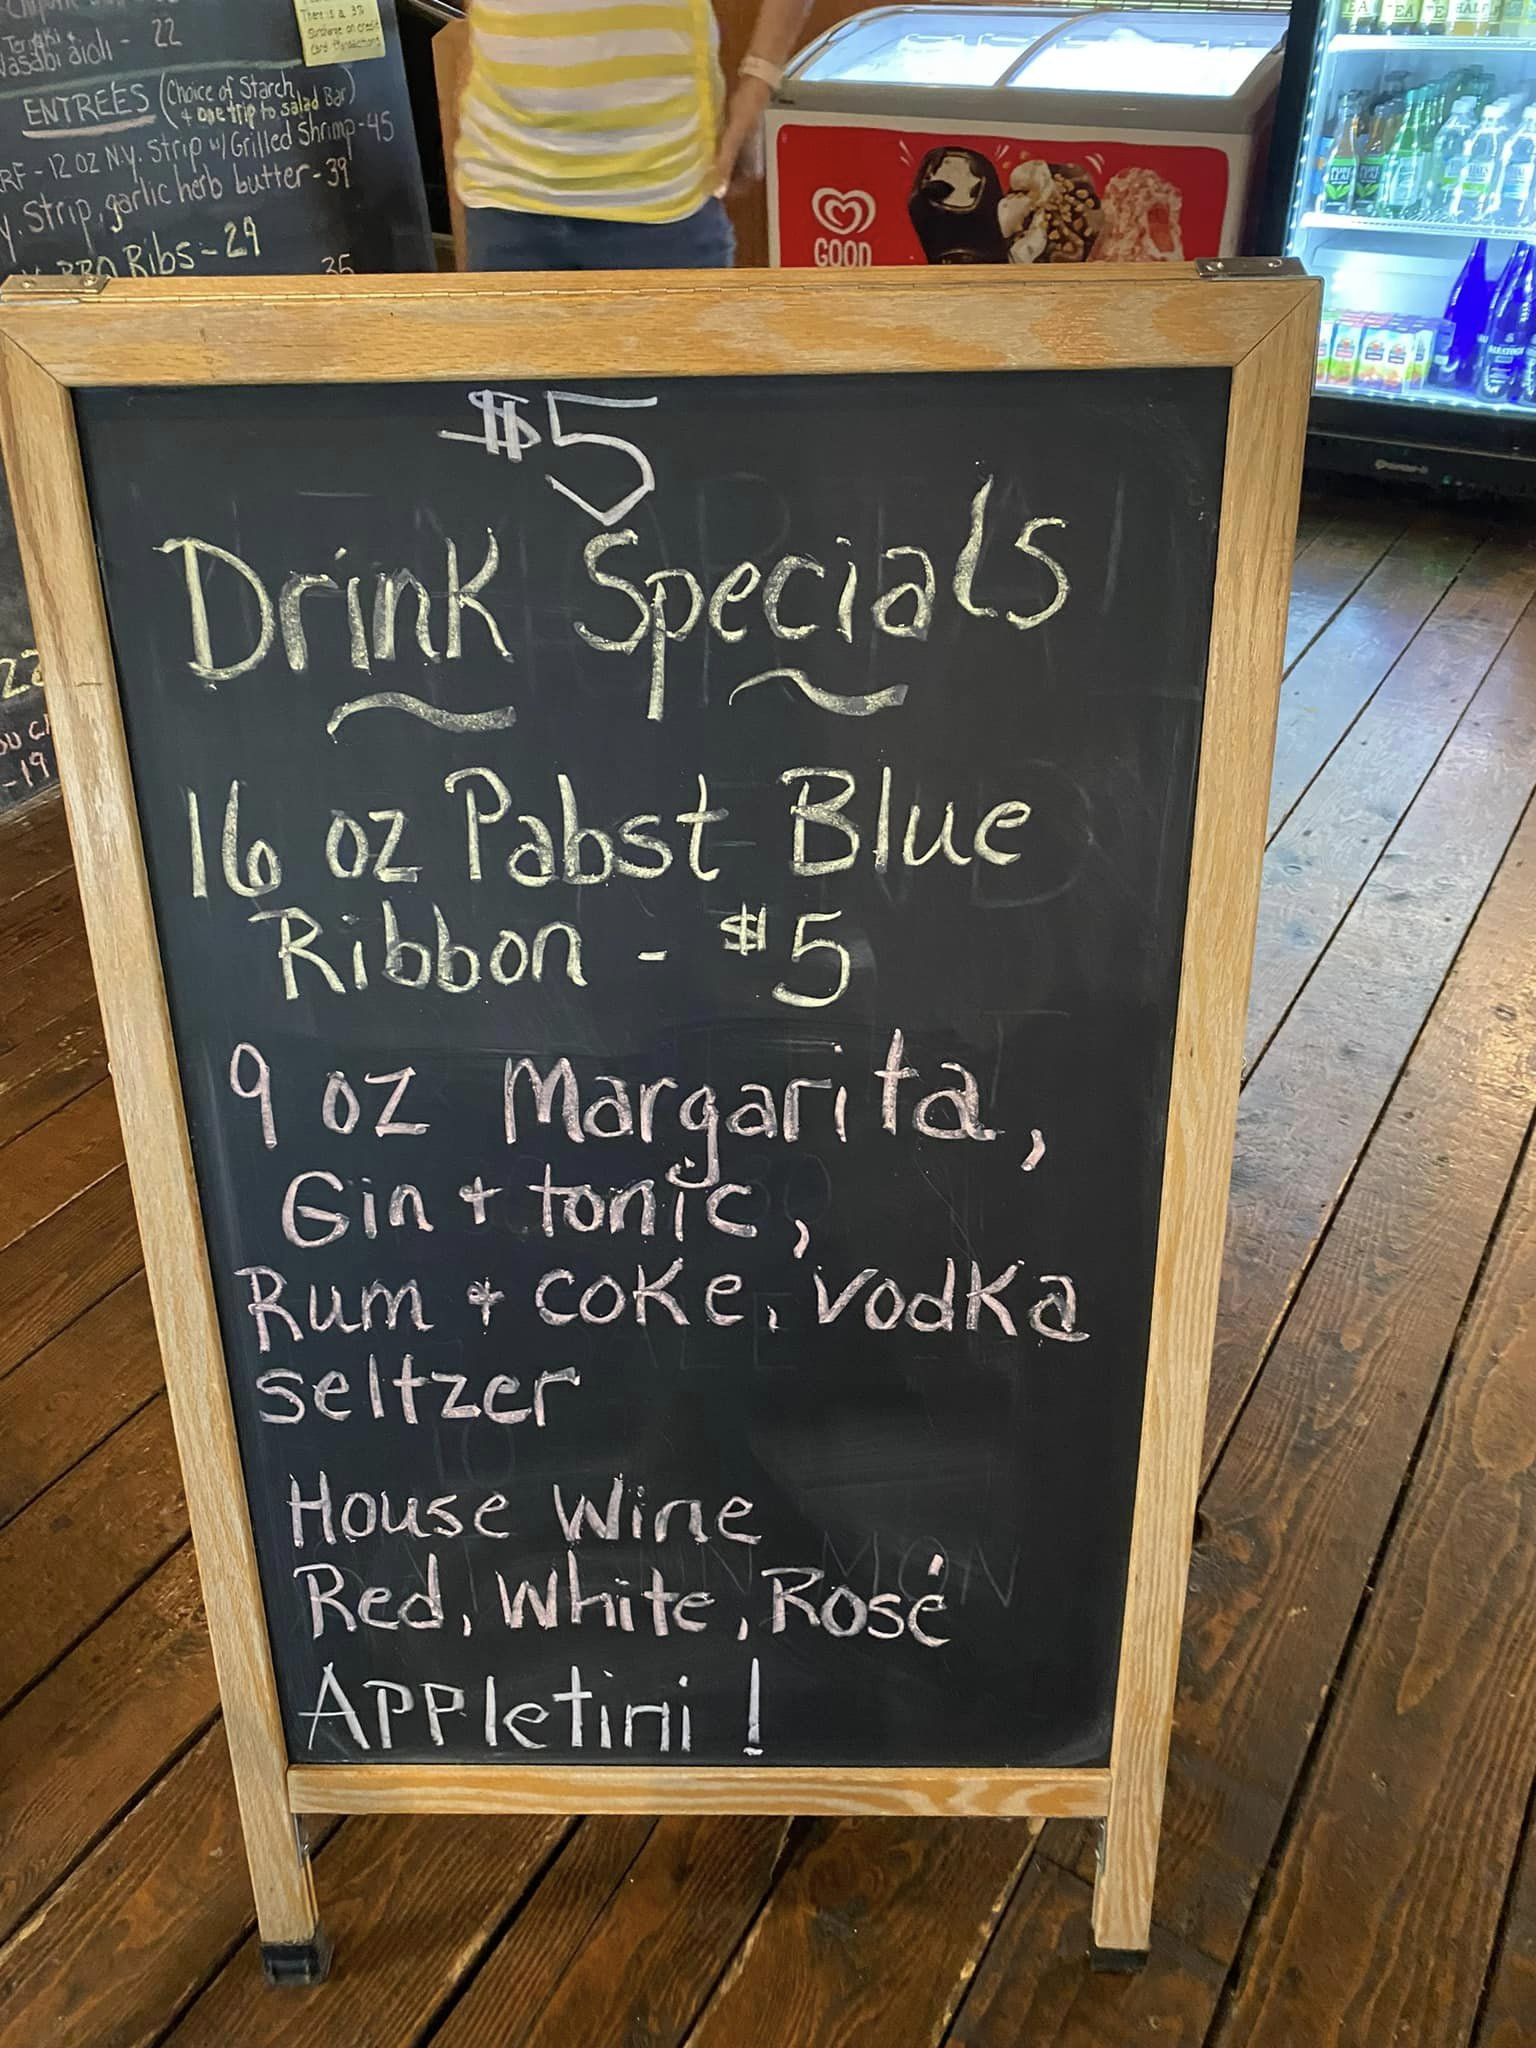 22
aioli -
There is a 3%
surcharge on credit
card transactions
ENTREES (Choice of Starch
+ one trip to salad Bar)
RF - 12 oz N.Y. Strip w/ Grilled Shrimp - 45
y. Strip, garlic herb butter - 39
BBQ Ribs - 29
35
- 19
GOOD
$5
Drink Specials
16 oz Pabst Blue
Ribbon - $5
9 oz Margarita,
Gin + tonic,
Rum + coke, vodka
seltzer
House Wine
Red, White, Rosé
Appletini!